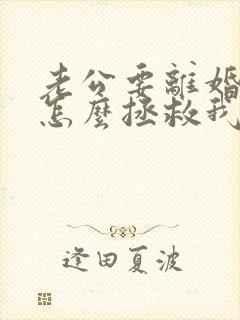 老公要離婚
怎麼拯救我
逢田夏波